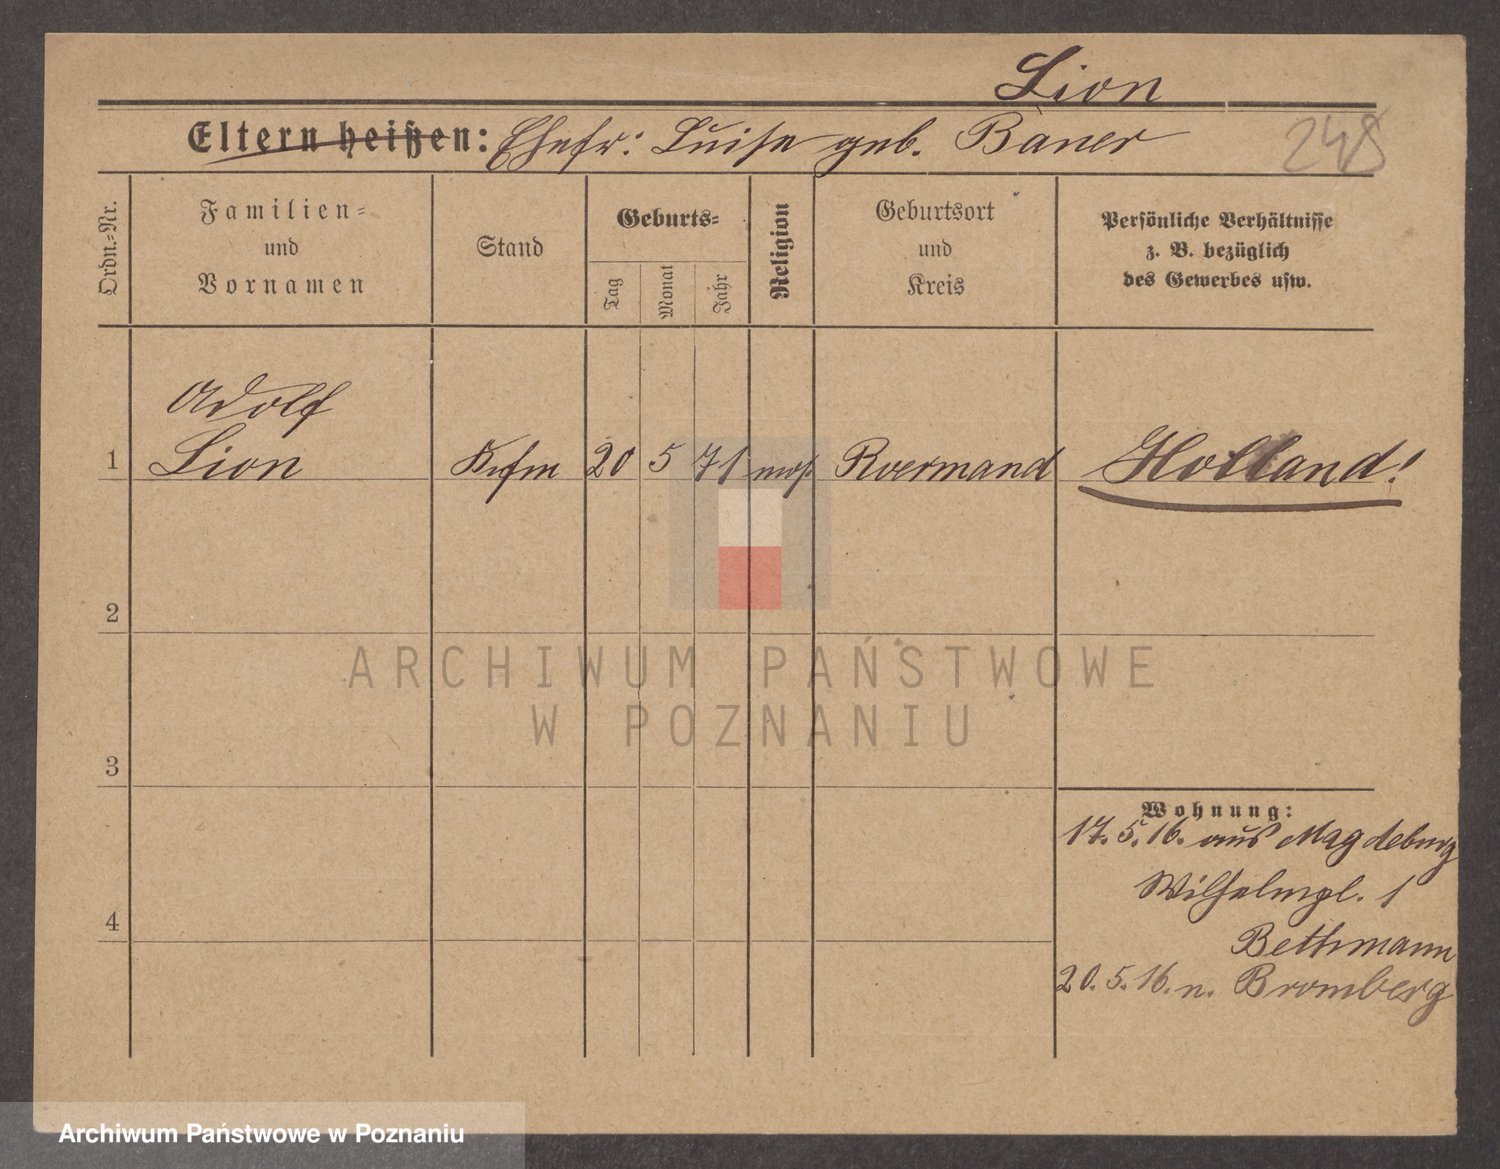 Lion
Eltern heißen: Ehefr: Luise geb. Baner
248
Ordn.-Nr.
Familien-
und
Vornamen
Stand
Geburts-
Tag
Monat
Jahr
Religion
Geburtsort
und
Kreis
Persönliche Verhältnisse
z. B. bezüglich
des Gewerbes usw.
Adolf
1 Lion Kfm 20 5 71 mos. Roermand Holland!
2
3
4
Wohnung:
17.5.16. aus Magdeburg
Wilhelmpl. 1
Bethmann
20.5.16. n. Bromberg
ARCHIWUM PAŃSTWOWE
W POZNANIU
Archiwum Państwowe w Poznaniu